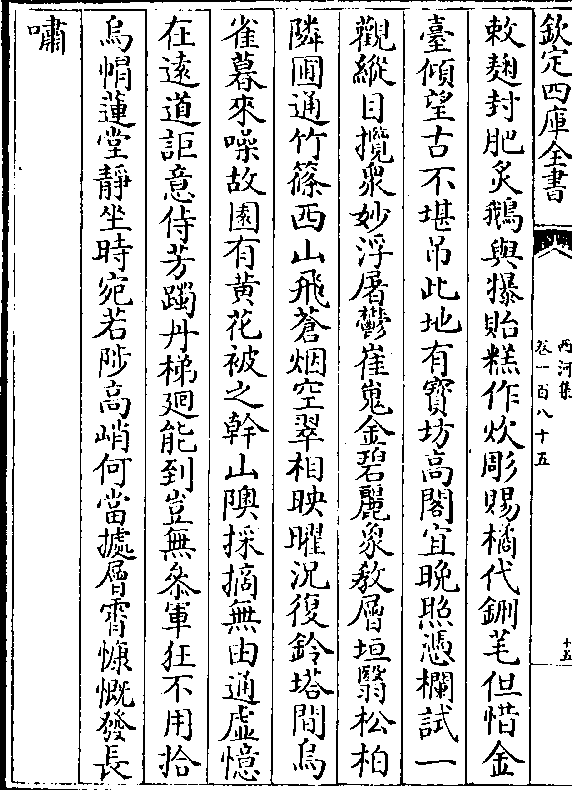 欽定四庫全書
西河集
卷一百八十五
十五
敕麹封肥炙鵝與㸑貽糕作炊彫賜橘代鉶芼但惜金
臺傾望古不堪吊此地有寶坊高閣宜晩照憑欄試一
觀縱目攬衆妙浮屠鬱崔嵬金碧麗象教層垣翳松柏
隣圃通竹篠西山飛蒼烟空翠相映曜況復鈴塔間烏
雀暮來噪故園有黄花被之幹山隩採摘無由通虚憶
在逺道詎意侍芳躅丹梯廻能到豈無叅軍狂不用拾
烏㡌蓮堂靜坐時宛若陟高峭何當據層霄慷慨發長
嘯